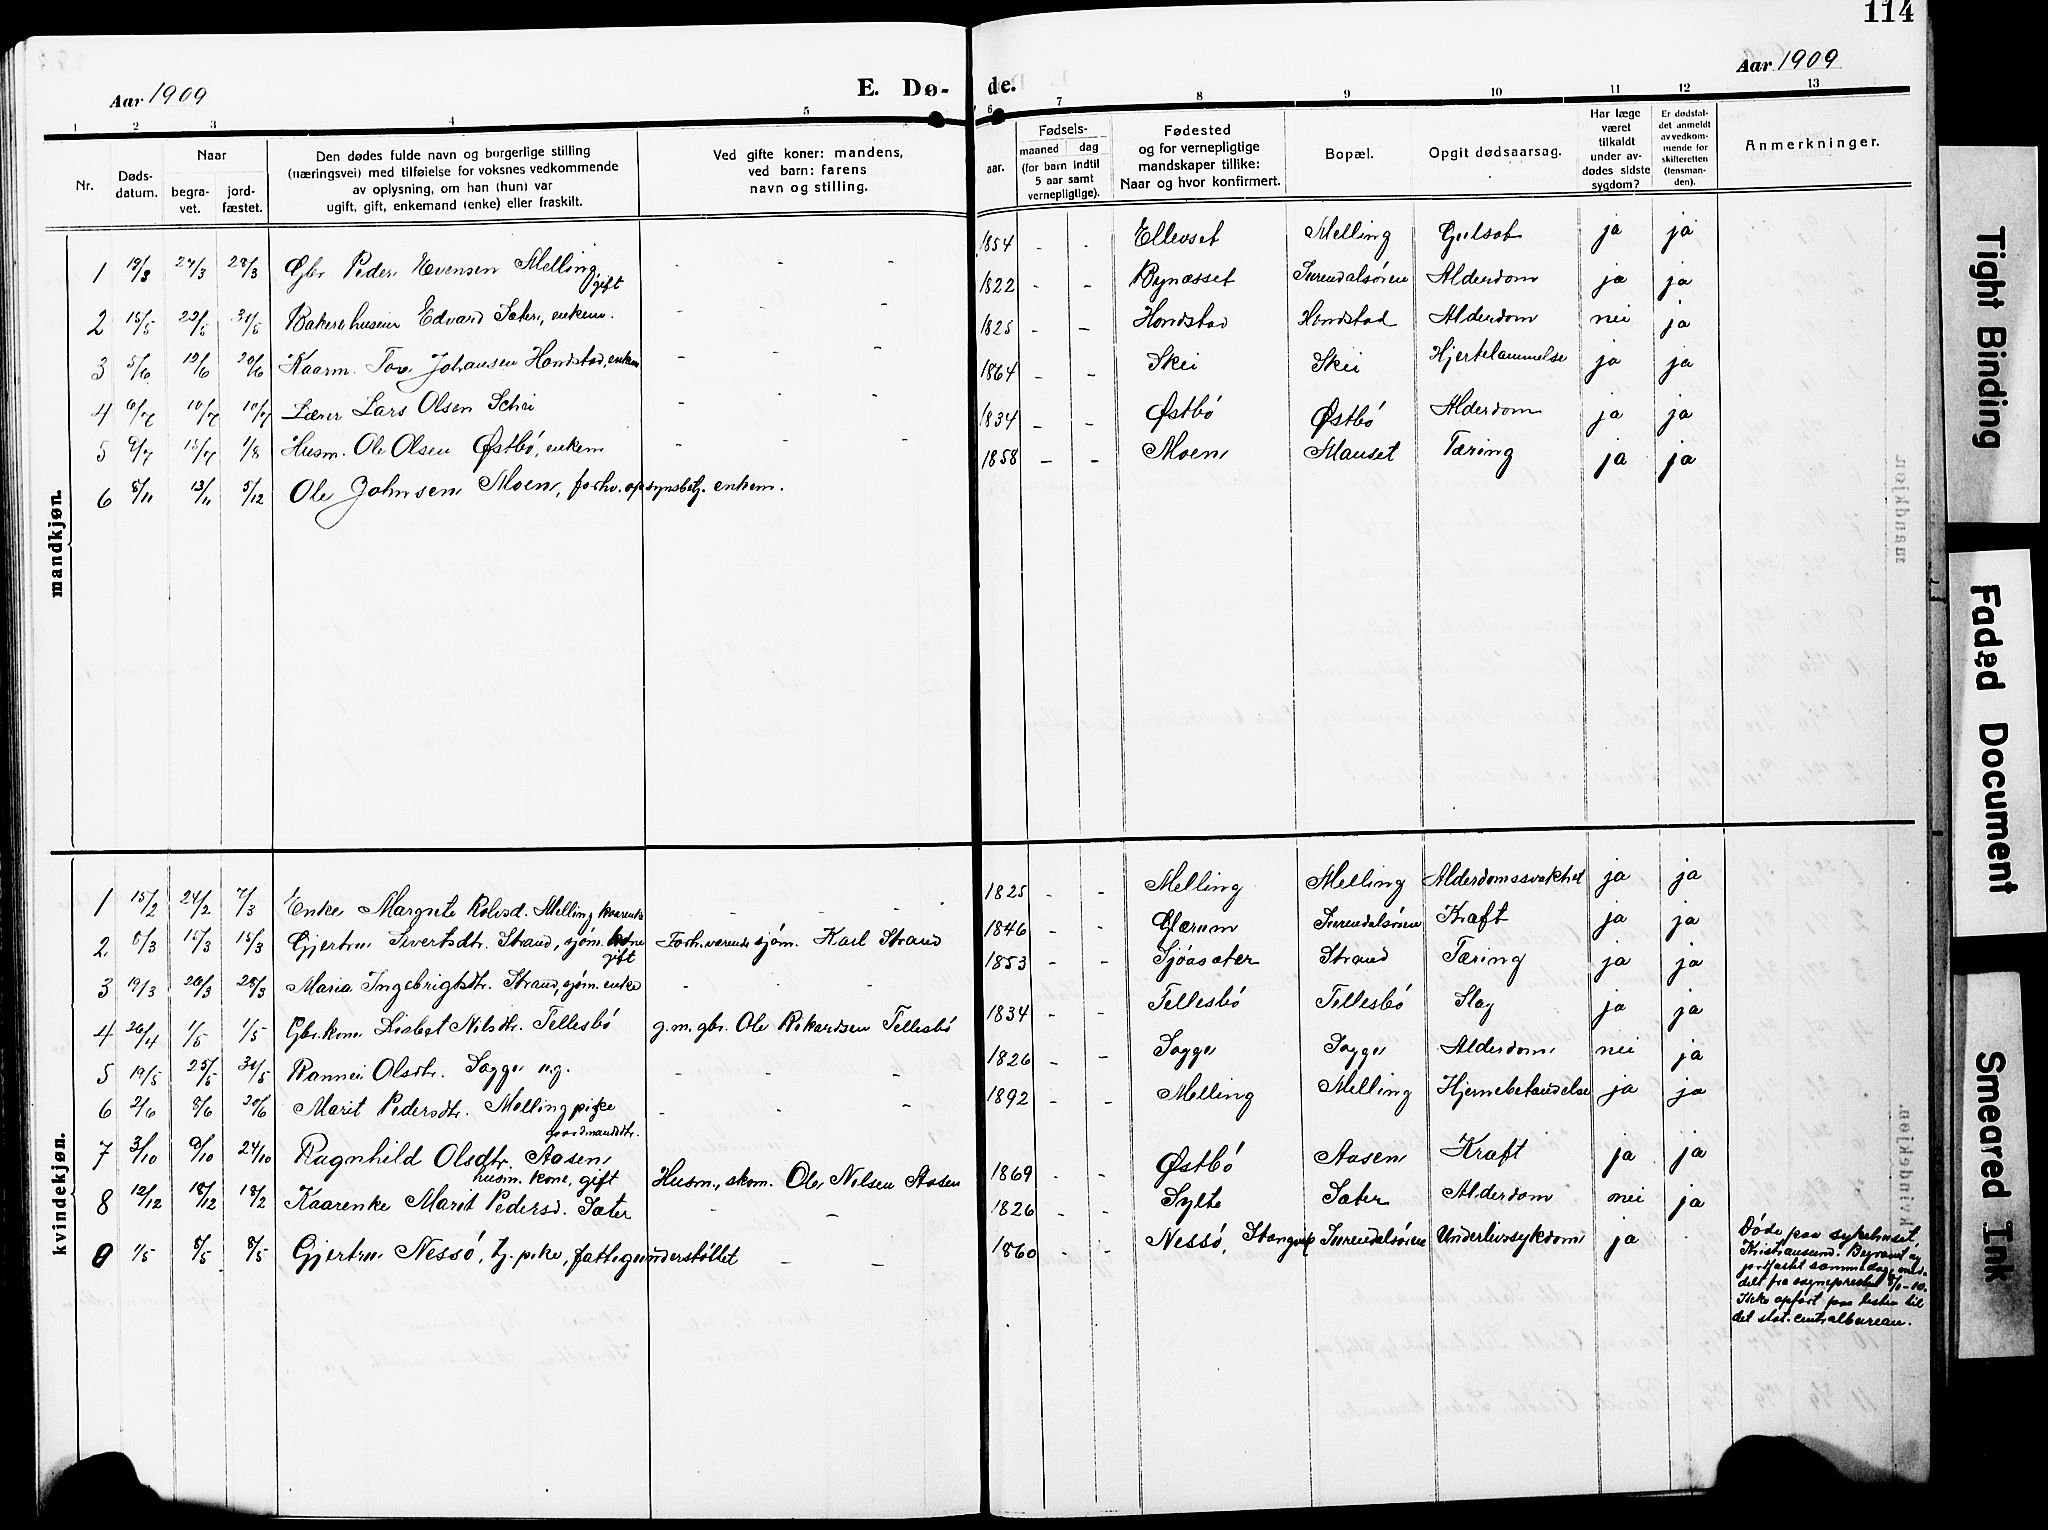 114
Aar 1909
E. Dø-
de.
Aar 1909
1 2 3 4 5 6 7 8 9 10 11 12 13
Nr.
Døds-
datum.
Naar
begra-
vet.
jord-
fæstet.
Den dødes fulde navn og borgerlige stilling
(næringsvei) med tilføielse for voksnes vedkommende
av oplysning, om han (hun) var
ugift, gift, enkemand (enke) eller fraskilt.
Ved gifte koner: mandens,
ved barn: farens
navn og stilling.
aar.
Fødsels-
maaned dag
(for barn indtil
5 aar samt
vernepligtige).
Fødested
og for vernepligtige
mandskaper tillike:
Naar og hvor konfirmert.
Bopæl.
Opgit dødsaarsag.
Har læge
været
tilkaldt
under av-
dødes sidste
sygdom?
Er dødsfal-
det anmeldt
av vedkom-
mende for
skifteretten
(lensman-
den).
Anmerkninger.
mandkjøn.
1 19/3 27/3 28/3 Gbr Peder Evensen Melling, gift - - - 1854 - - Ellevset Melling Gulsot ja ja
2 15/5 22/5 31/5 Edvard Sæter, enkem. - - - 1822 - - Bynæsset Surendalsøren Alderdom ja ja
3 5/6 12/6 20/6 Kaarm. Tore Johansen Hondstad, enkem - - - 1825 - - Hondstad Hondstad Alderdom nei ja
4 6/7 10/7 10/7 Lærer Lars Olsen Schei - - - 1864 - - Skei Skei Hjertelammelse ja ja
5 9/7 15/7 1/8 Husm. Ole Olsen Østbö, enkem - - - 1834 - - Østbö Østbö Alderdom ja ja
6 8/11 13/11 5/12 Ole Johnsen Moen, forhv. opsynsbetj. enkem. 1858 - - Moen Mauset Tæring ja ja
kvindekjøn.
1 15/2 24/2 7/3 Enke Margrete Rolvsd. Melling kaarenke - - - - 1825 - - Melling Melling Alderdomssvakhet ja ja
2. 8/3 15/3 15/3 Gjertru Sivertsdtr. Strand, sjøm. kone gift Forhværende sjöm. Karl Strand 1846 - - Surendalsøren Kræft ja ja
3 19/3 28/3 28/3 Maria Ingebrigtsdtr. Strand, sjøm. enke - - - 1853 - - Sjöasæter Strand Tæring ja ja
4 26/4 1/5 1/5 Gbr.kone Lisbet Nilsdtr. Tellesbö g.m. gbr. Ole Rikardsen Tellesbö 1834 - - Tellesbö Tellesbö Slag ja ja
5 19/5 25/5 30/5 Rannei Olsdtr. Sogge ug. - - - 1826 - - Sogge Sogge Alderdom nei ja
6 2/6 8/6 20/6 Marit Pedersdtr. Melling pike
gaardmandsdtr. - - - 1892 - - Melling Melling Hjernebetændelse ja ja
7 3/10 9/10 24/10 Ragnhild Olsdtr. Aasen,
husm. kone, gift Husm., skom. Ole Nilsen Aasen 1869 - - Østbö Aasen Kræft ja ja
8 12/12 18/12 18/2 Kaarenke Marit Pedersd. Sæter - - 1826 - - Sylte Sæter Alderdom nei ja
9 1/5 8/5 8/5 Gjertru Nessö, tj. pike, fattigunderstöttet - - 1860 - - Nessö, Stangvik Surendalsøren Underlivssykdom ja -
Döde paa sykehuset,
Kristiansund. Begravet og
jordfæstet samme dag, med-
delt fra sogneprester 8/1-10.
Ikke opfört paa listen til
det stat. centralbureau.
Tight Binding
Faded Document
Smeared Ink